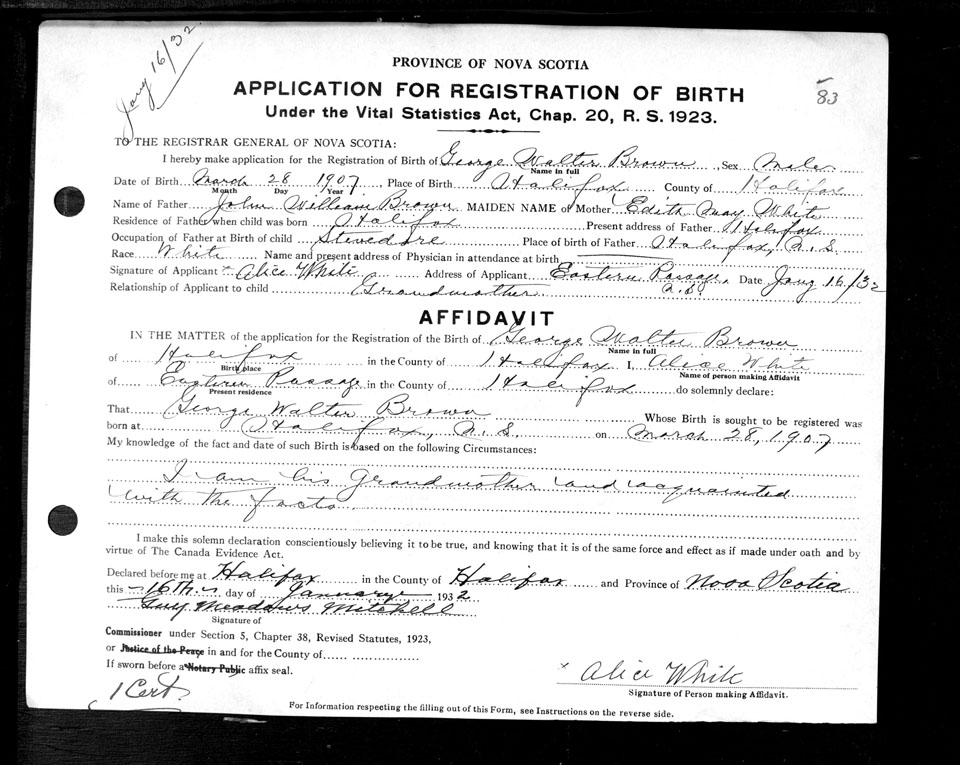 Jany 16/32
83
PROVINCE OF NOVA SCOTIA
APPLICATION FOR REGISTRATION OF BIRTH
Under the Vital Statistics Act, Chap. 20, R. S. 1923.
TO THE REGISTRAR GENERAL OF NOVA SCOTIA:
I hereby make application for the Registration of Birth of George Walter Brown Sex Male
Name in full
Date of Birth March 28 1907, Place of Birth Halifax County of Halifax
Month Day Year
Name of Father John William Brown MAIDEN NAME of Mother Edith May White
Residence of Father when child was born Halifax Present address of Father Halifax
Occupation of Father at Birth of child Stevedore Place of birth of Father Halifax, N.S.
Race White Name and present address of Physician in attendance at birth
Signature of Applicant Alice White Address of Applicant Eastern Passage, Date Jany 16/32
N.S.
Relationship of Applicant to child Grandmother
AFFIDAVIT
IN THE MATTER of the application for the Registration of the Birth of George Walter Brown
Name in full
of Halifax in the County of Halifax I, Alice White
Birth place Name of person making Affidavit
of Eastern Passage in the County of Halifax do solemnly declare:
Present residence
That George Walter Brown Whose Birth is sought to be registered was
born at Halifax, N.S. on March 28, 1907
My knowledge of the fact and date of such Birth is based on the following Circumstances:
I am his Grandmother and acquainted
with the facts
I make this solemn declaration conscientiously believing it to be true, and knowing that it is of the same force and effect as if made under oath and by
virtue of The Canada Evidence Act.
Declared before me at Halifax in the County of Halifax and Province of Nova Scotia
this 16th day of January 1932
Guy Meadows Mitchell
Signature of
Commissioner under Section 5, Chapter 38, Revised Statutes, 1923,
or Justice of the Peace in and for the County of
If sworn before a Notary Public affix seal.
x Alice White
Signature of Person making Affidavit.
1 Cert
For Information respecting the filling out of this Form, see Instructions on the reverse side.